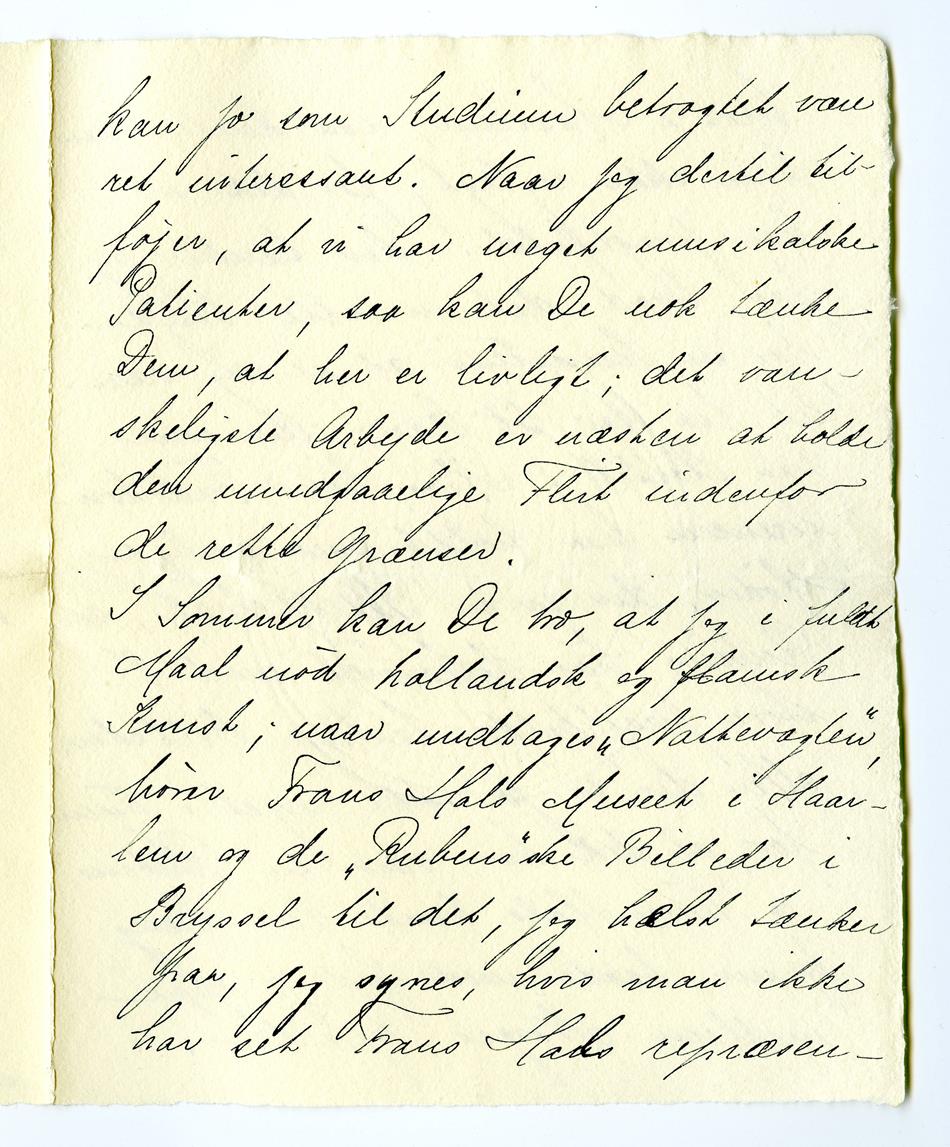 kan jo som Studium betragtet være
ret interessant. Naar jeg dertil til-
føjer, at vi har meget musikalske
Patienter, saa kan De nok tænke
Dem, at her er livligt; det van-
skeligste Arbejde er næsten at holde
den uundgaaelige Flirt indenfor
de rette Grænser.
I Sommer kan De tro, at jeg i fuldt
Maal nød hollandsk og flamsk
Kunst; naar undtages „Nattevagten“,
hører Frans Hals Museet i Haar-
lem og de „Rubens“ske Billeder i
Bryssel til det, jeg helst tænker
paa, jeg synes, hvis man ikke
har set Frans Hals repræsen-